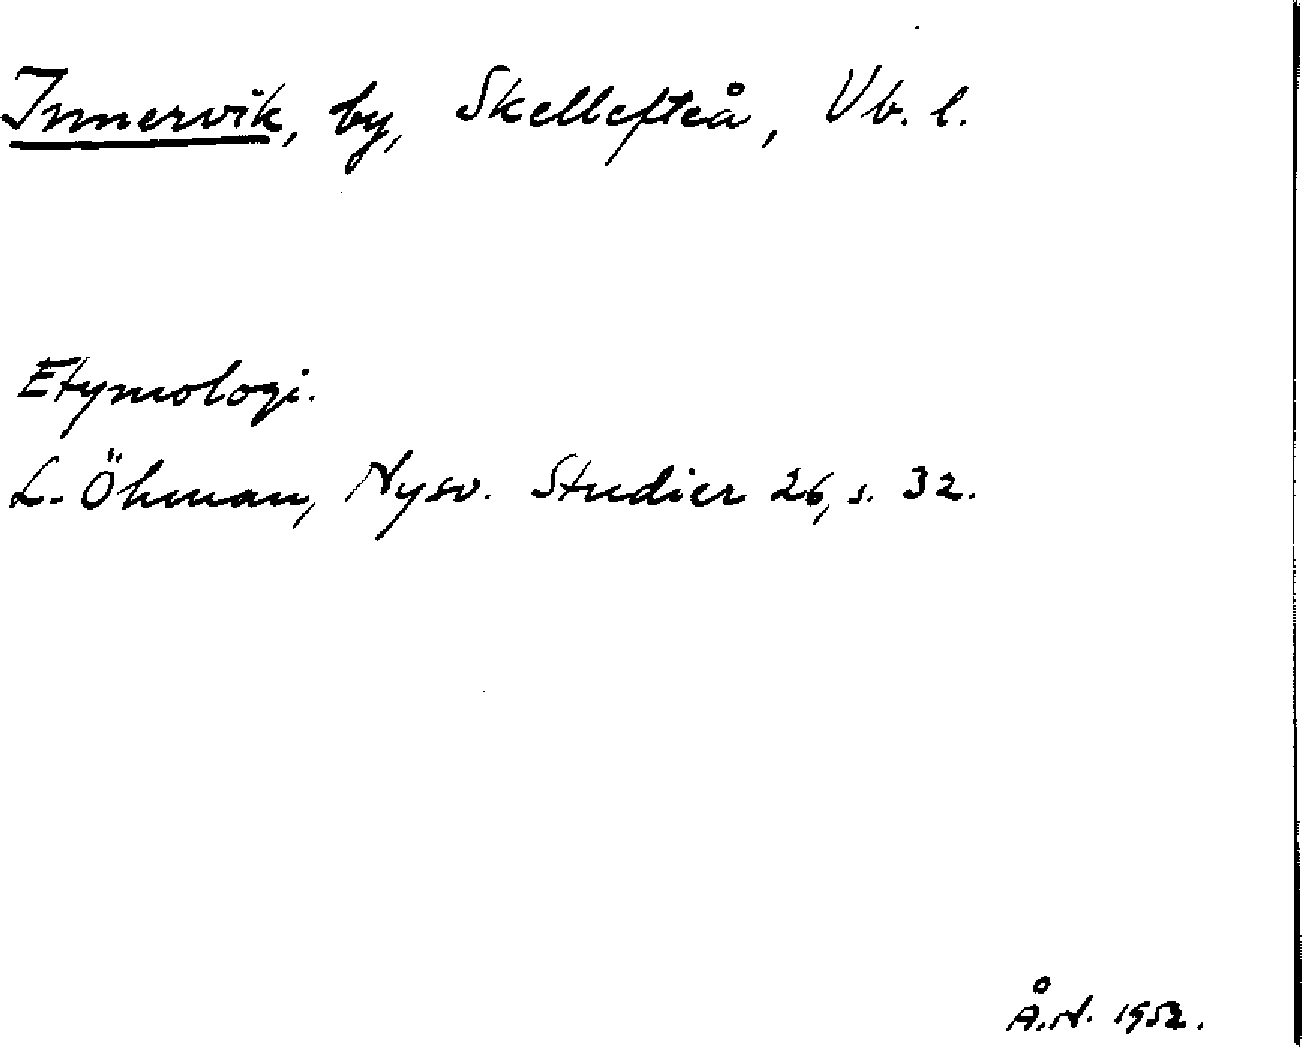 Innervik, by, Skellefteå, Vb. l.
Etymologi.
L. Öhman, Nysv. Studier 26, s. 32.
Å.N. 1952.